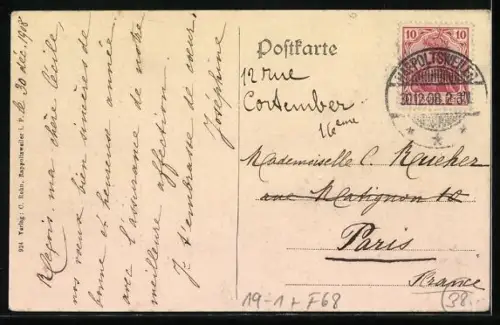 le 30 déc. 1908
Reçois ma chère Cécile,
nos vœux bien sincères de
bonne et heureuse année
avec l'assurance de ma
meilleure affection.
Je t'embrasse de cœur.
Joséphine
924 Verlag: C. Rahn, Rappoltsweiler i. E.
Postkarte
10 10
RAPPOLTSWEILER
30.12.08. 2-3N.
12 rue
Cortember
16eme
Mademoiselle C.
ave Matignon 12
Paris
France
19-1+F68
38.-